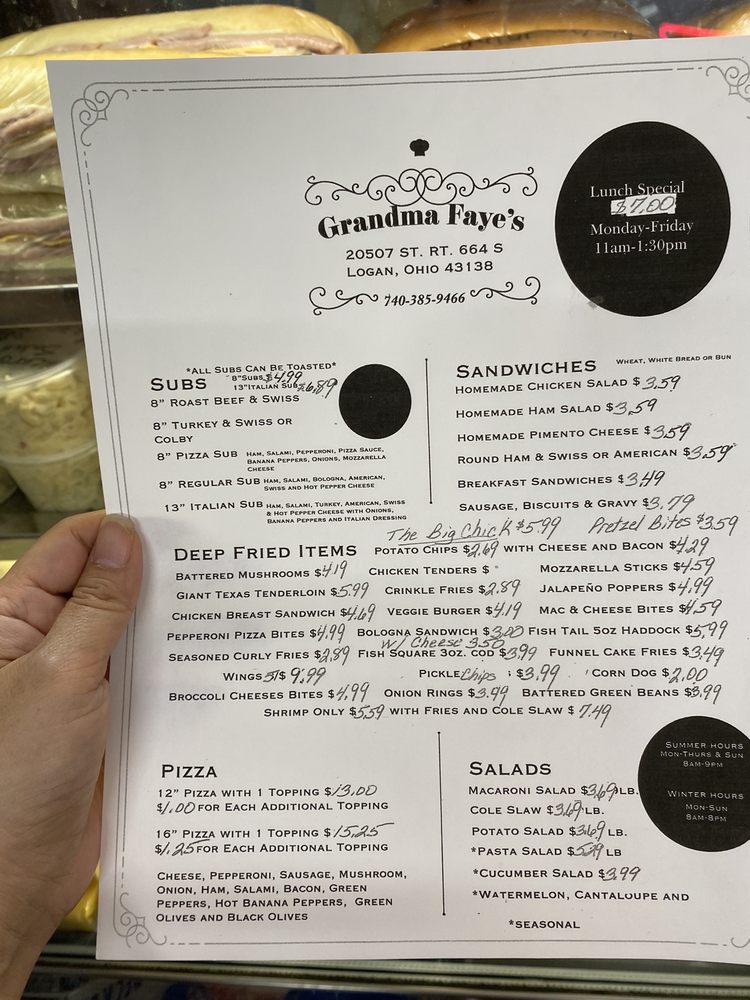 Grandma Faye's
20507 ST. RT. 664 S
LOGAN, OHIO 43138
740-385-9466
Lunch Special
$7.00
Monday-Friday
11am-1:30pm
*ALL SUBS CAN BE TOASTED*
SUBS 8"SUBS $4.99
13"ITALIAN SUB $6.89
8" ROAST BEEF & SWISS
8" TURKEY & SWISS OR
COLBY
8" PIZZA SUB HAM, SALAMI, PEPPERONI, PIZZA SAUCE,
BANANA PEPPERS, ONIONS, MOZZARELLA
CHEESE
8" REGULAR SUB HAM, SALAMI, BOLOGNA, AMERICAN,
SWISS AND HOT PEPPER CHEESE
13" ITALIAN SUB HAM, SALAMI, TURKEY, AMERICAN, SWISS
& HOT PEPPER CHEESE WITH ONIONS,
BANANA PEPPERS AND ITALIAN DRESSING
SANDWICHES WHEAT, WHITE BREAD OR BUN
HOMEMADE CHICKEN SALAD $3.59
HOMEMADE HAM SALAD $3.59
HOMEMADE PIMENTO CHEESE $3.59
ROUND HAM & SWISS OR AMERICAN $3.59
BREAKFAST SANDWICHES $3.49
SAUSAGE, BISCUITS & GRAVY $3.79
The Big Chick $5.99 Pretzel Bites $3.59
DEEP FRIED ITEMS POTATO CHIPS $2.69 WITH CHEESE AND BACON $4.29
BATTERED MUSHROOMS $4.19 CHICKEN TENDERS $ MOZZARELLA STICKS $4.59
GIANT TEXAS TENDERLOIN $5.99 CRINKLE FRIES $2.89 JALAPEÑO POPPERS $4.99
CHICKEN BREAST SANDWICH $4.69 VEGGIE BURGER $4.19 MAC & CHEESE BITES $4.59
PEPPERONI PIZZA BITES $4.99 BOLOGNA SANDWICH $3.00 FISH TAIL 5OZ HADDOCK $5.99
w/ Cheese 3.50
SEASONED CURLY FRIES $2.89 FISH SQUARE 3OZ. COD $3.99 FUNNEL CAKE FRIES $3.49
WINGS 5/$ 9.99 PICKLE Chips $3.99 CORN DOG $2.00
BROCCOLI CHEESES BITES $4.99 ONION RINGS $3.49 BATTERED GREEN BEANS $3.99
SHRIMP ONLY $5.59 WITH FRIES AND COLE SLAW $ 7.49
PIZZA
12" PIZZA WITH 1 TOPPING $13.00
$1.00 FOR EACH ADDITIONAL TOPPING
16" PIZZA WITH 1 TOPPING $15.25
$1.25 FOR EACH ADDITIONAL TOPPING
CHEESE, PEPPERONI, SAUSAGE, MUSHROOM,
ONION, HAM, SALAMI, BACON, GREEN
PEPPERS, HOT BANANA PEPPERS, GREEN
OLIVES AND BLACK OLIVES
SALADS
MACARONI SALAD $3.69 LB.
COLE SLAW $3.69 LB.
POTATO SALAD $3.69 LB.
*PASTA SALAD $5.29 LB
*CUCUMBER SALAD $3.99
*WATERMELON, CANTALOUPE AND
*SEASONAL
SUMMER HOURS
MON-THURS & SUN
8AM-9PM
WINTER HOURS
MON-SUN
8AM-8PM